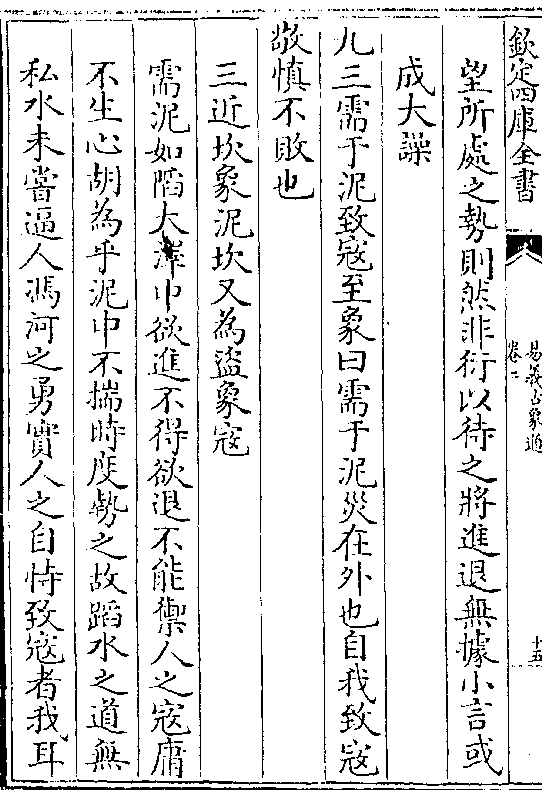 欽定四庫全書
易義古象通
卷二
十五
望所處之勢則然非衍以待之將進退無據小言或
成大譟
九三需于泥致寇至象曰需于泥災在外也自我致寇
敬慎不敗也
三近坎象泥坎又為盜象寇
需泥如陷大澤中欲進不得欲退不能禦人之寇庸
不生心胡為乎泥中不揣時度勢之故蹈水之道無
私水未嘗逼人馮河之勇實人之自恃致寇者我耳